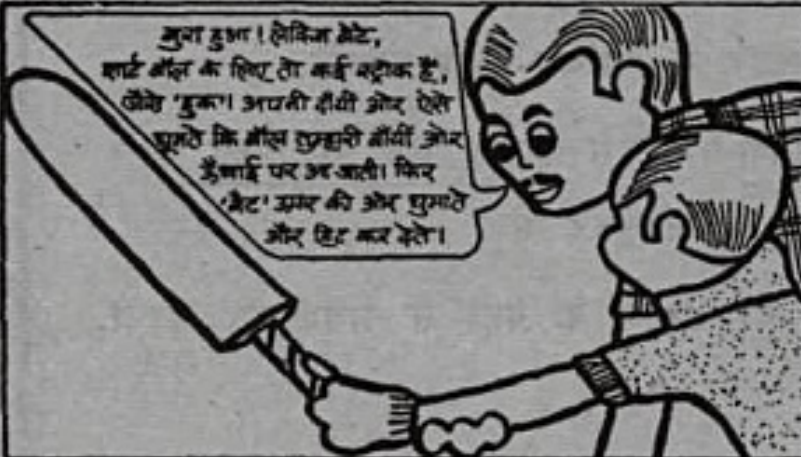 बुरा हुआ! लेकिन बेटे,
शार्ट बॉल के लिए तो कई स्ट्रोक हैं,
जैसे 'हुक'। अपनी दाँयी ओर ऐसे
घूमते कि बॉल तुम्हारी बाँयीं ओर
ऊँचाई पर आ जाती। फिर
'बैट' ऊपर की ओर घुमाते
और हिट कर देते।